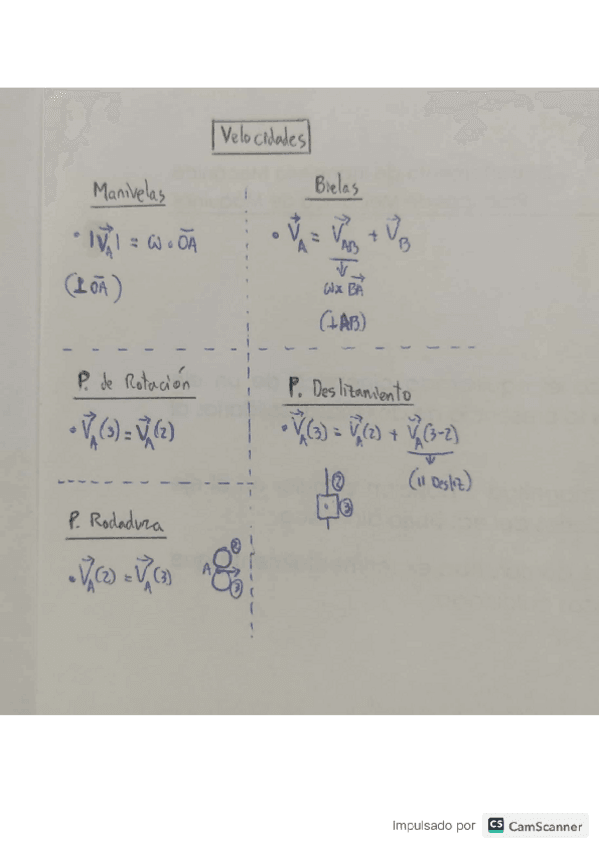 Velocidades
Manivelas
• |V⃗_A| = ω · O̅A̅
(⊥ O̅A̅)
Bielas
• V⃗_A = V⃗_AB + V⃗_B
ω x B⃗A⃗
(⊥AB)
P. de Rotación
• V⃗_A(3) = V⃗_A(2)
P. Deslizamiento
• V⃗_A(3) = V⃗_A(2) + V⃗_A(3-2)
(|| Desliz)
2
3
P. Rodadura
• V⃗_A(2) = V⃗_A(3)
2
A
3
Impulsado por CS CamScanner